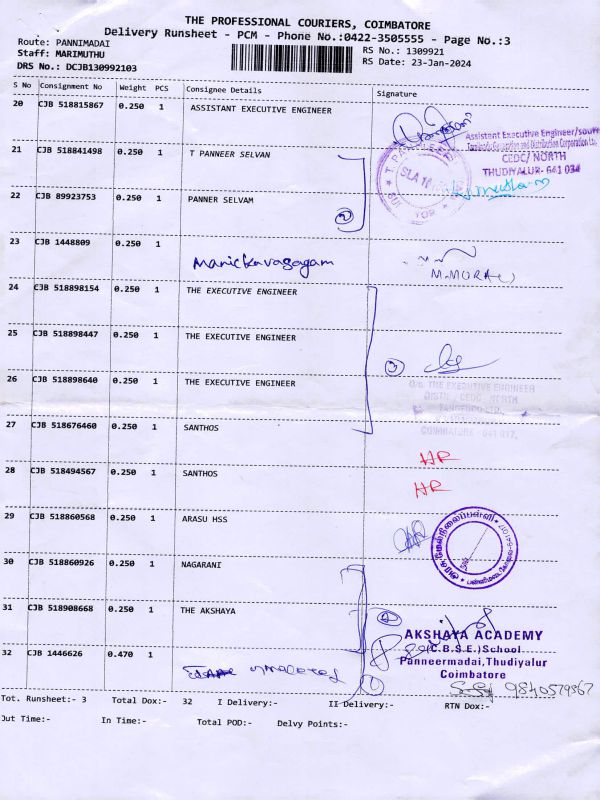 THE PROFESSIONAL COURIERS, COIMBATORE
Delivery Runsheet - PCM - Phone No.:0422-3505555 - Page No.:3
Route: PANNIMADAI
Staff: MARIMUTHU
DRS No.: DCJB130992103
RS No.: 1309921
RS Date: 23-Jan-2024
S No Consignment No Weight PCS Consignee Details Signature
20 CJB 518815867 0.250 1 ASSISTANT EXECUTIVE ENGINEER
Assistant Executive Engineer/south
Tamilnadu Generation and Distribution Corporation Ltd.
CEDC/ NORTH
THUDIYALUR- 641 034
21 CJB 518841498 0.250 1 T PANNEER SELVAN
22 CJB 89923753 0.250 1 PANNER SELVAM
2
23 CJB 1448809 0.250 1 Manickavasagam
M.MURALI
24 CJB 518898154 0.250 1 THE EXECUTIVE ENGINEER
25 CJB 518898447 0.250 1 THE EXECUTIVE ENGINEER
3
26 CJB 518898640 0.250 1 THE EXECUTIVE ENGINEER
O/o. THE EXECUTIVE ENGINEER
CEDC, NORTH
TANGEDCO LTD.,
COIMBATORE - 641 017.
27 CJB 518676460 0.250 1 SANTHOS
HR
28 CJB 518494567 0.250 1 SANTHOS
HR
29 CJB 518860568 0.250 1 ARASU HSS
30 CJB 518860926 0.250 1 NAGARANI
31 CJB 518908668 0.250 1 THE AKSHAYA
AKSHAYA ACADEMY
(C.B.S.E.) School
Panneermadai, Thudiyalur
Coimbatore
32 CJB 1446626 0.470 1
9840579367
Tot. Runsheet:- 3 Total Dox:- 32 I Delivery:- II Delivery:- RTN Dox:-
Out Time:- In Time:- Total POD:- Delvy Points:-